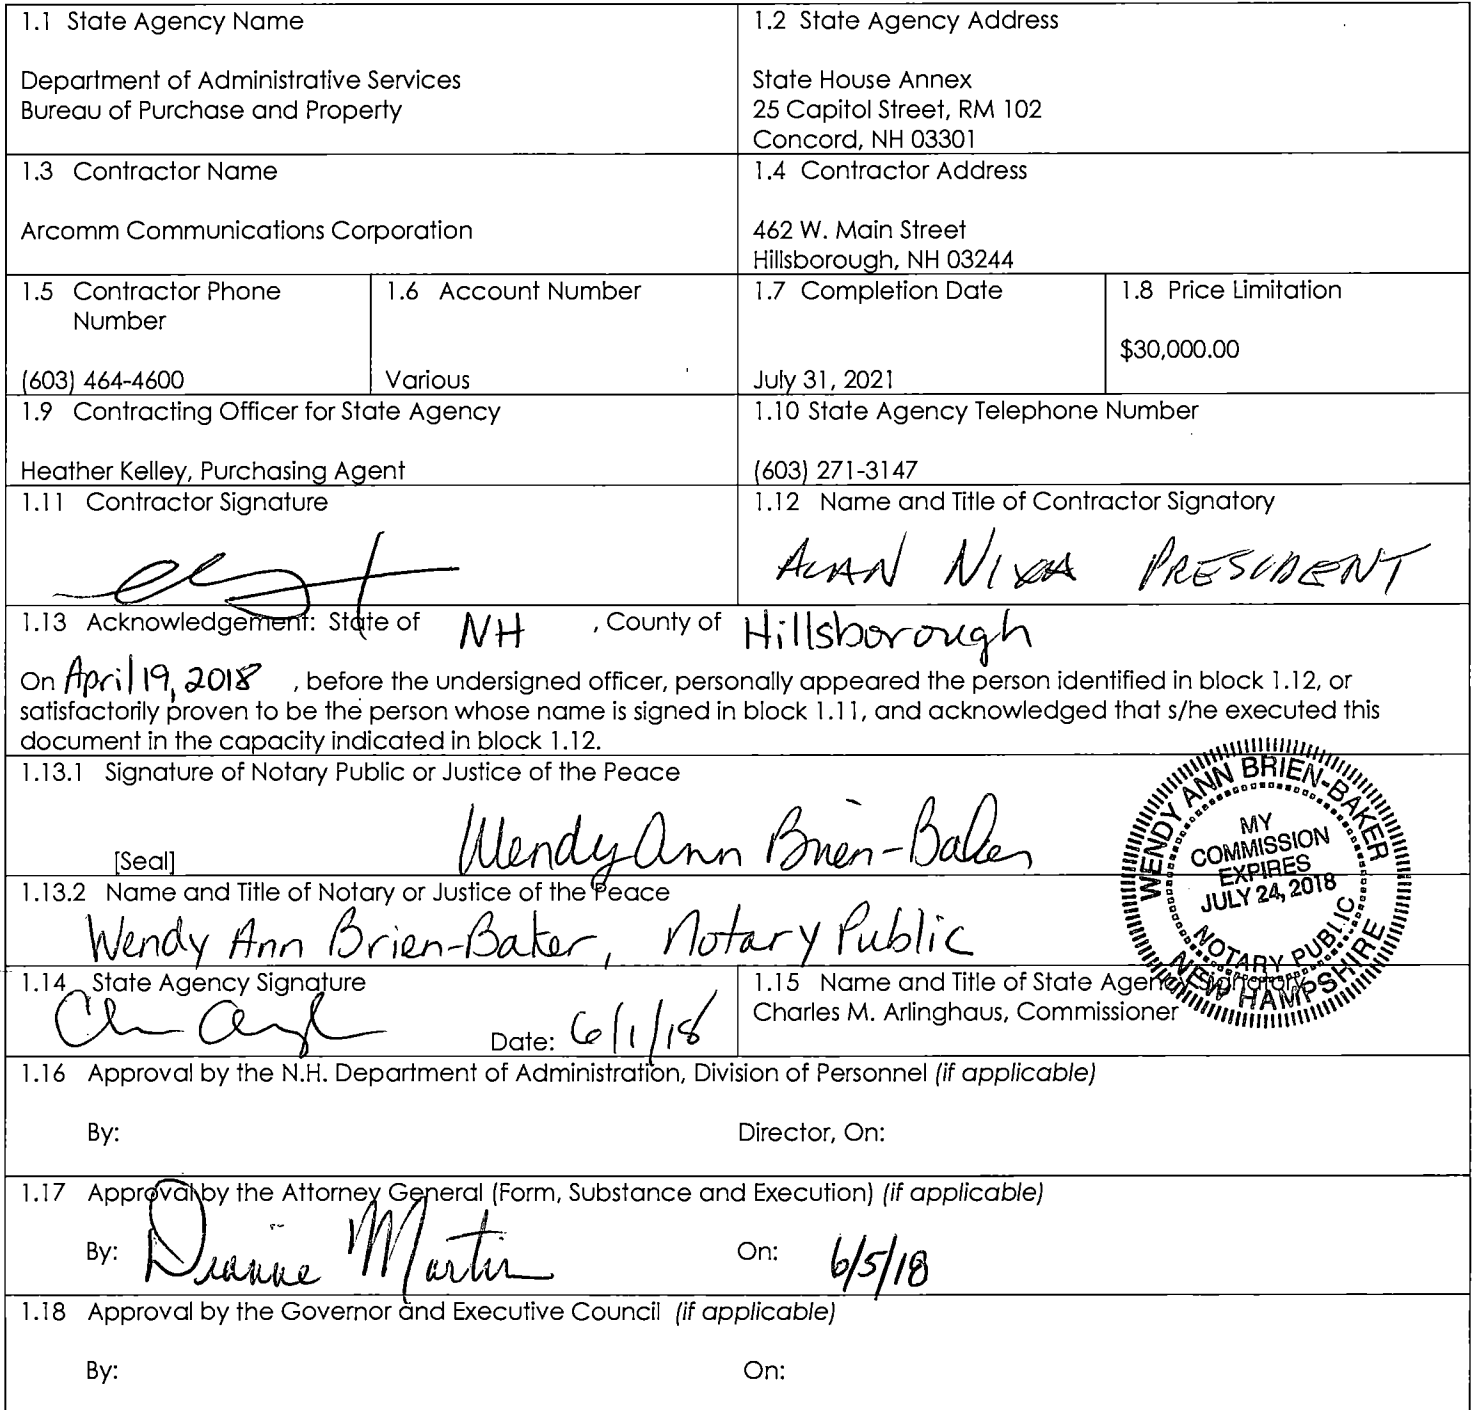 1.1 State Agency Name
Department of Administrative Services
Bureau of Purchase and Property
1.2 State Agency Address
State House Annex
25 Capitol Street, RM 102
Concord, NH 03301
1.3 Contractor Name
Arcomm Communications Corporation
1.4 Contractor Address
462 W. Main Street
Hillsborough, NH 03244
1.5 Contractor Phone
Number
(603) 464-4600
1.6 Account Number
Various
1.7 Completion Date
July 31, 2021
1.8 Price Limitation
$30,000.00
1.9 Contracting Officer for State Agency
Heather Kelley, Purchasing Agent
1.10 State Agency Telephone Number
(603) 271-3147
1.11 Contractor Signature
1.12 Name and Title of Contractor Signatory
ALAN PRESIDENT
1.13 Acknowledgement: State of NH , County of Hillsborough
On April 19, 2018 , before the undersigned officer, personally appeared the person identified in block 1.12, or
satisfactorily proven to be the person whose name is signed in block 1.11, and acknowledged that s/he executed this
document in the capacity indicated in block 1.12.
1.13.1 Signature of Notary Public or Justice of the Peace
Wendy Ann Brien-Baker
[Seal]
WENDY ANN BRIEN-BAKER
MY
COMMISSION
EXPIRES
JULY 24, 2018
NOTARY PUBLIC
NEW HAMPSHIRE
1.13.2 Name and Title of Notary or Justice of the Peace
Wendy Ann Brien-Baker, Notary Public
1.14 State Agency Signature
Date: 6/1/18
1.15 Name and Title of State Agency Signatory
Charles M. Arlinghaus, Commissioner
1.16 Approval by the N.H. Department of Administration, Division of Personnel (if applicable)
By: Director, On:
1.17 Approval by the Attorney General (Form, Substance and Execution) (if applicable)
By: Dianne Martin On: 6/5/18
1.18 Approval by the Governor and Executive Council (if applicable)
By: On: